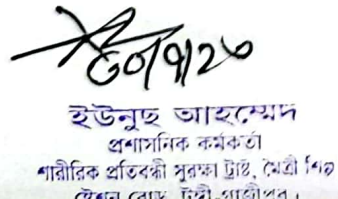 ৩০/৭/২৩
ইউনুছ আহম্মেদ
প্রশাসনিক কর্মকর্তা
শারীরিক প্রতিবন্ধী সুরক্ষা ট্রাষ্ট, মৈত্রী শিল্প
স্টেশন রোড, টঙ্গী-গাজীপুর।